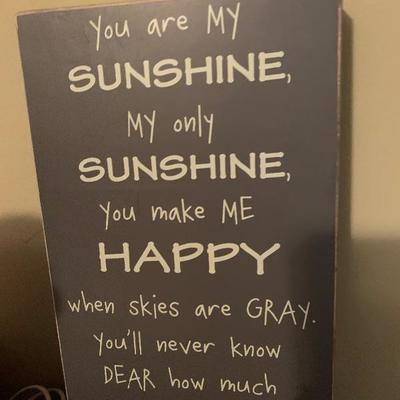 You are MY
SUNSHINE,
MY only
SUNSHINE,
You make ME
HAPPY
when skies are GRAY.
You'll never know
DEAR how much